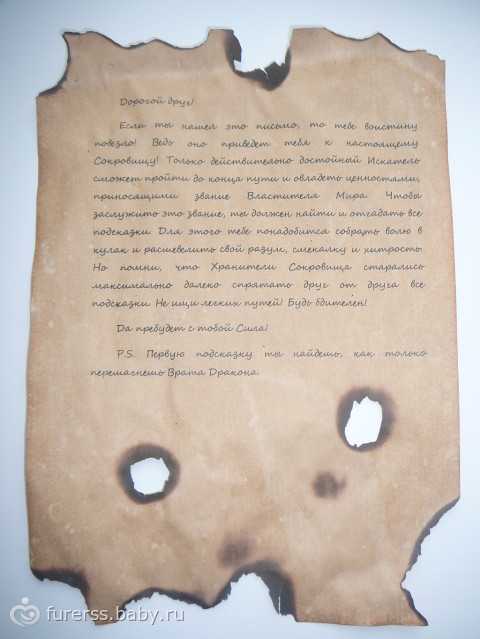 Дорогой друг!
Если ты нашел это письмо, то тебе воистину
повезло! Ведь оно приведет тебя к настоящему
Сокровищу! Только действительно достойный Искатель
сможет пройти до конца пути и овладеть ценностями,
приносящими звание Властителя Мира. Чтобы
заслужить это звание, ты должен найти и отгадать все
подсказки. Для этого тебе понадобится собрать волю в
кулак и расшевелить свой разум, смекалку и хитрость.
Но помни, что Хранители Сокровища старались
максимально далеко спрятать друг от друга все
подсказки. Не ищи легких путей! Будь бдителен!
Да пребудет с тобой Сила!
P.S. Первую подсказку ты найдешь, как только
перешагнешь Врата Дракона.
furerss.baby.ru